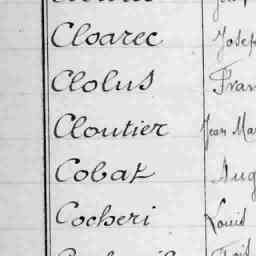 Cloarec Josep
Clolus Fran
Cloutier Jean Mar
Cobat Aug
Cocheri Louis